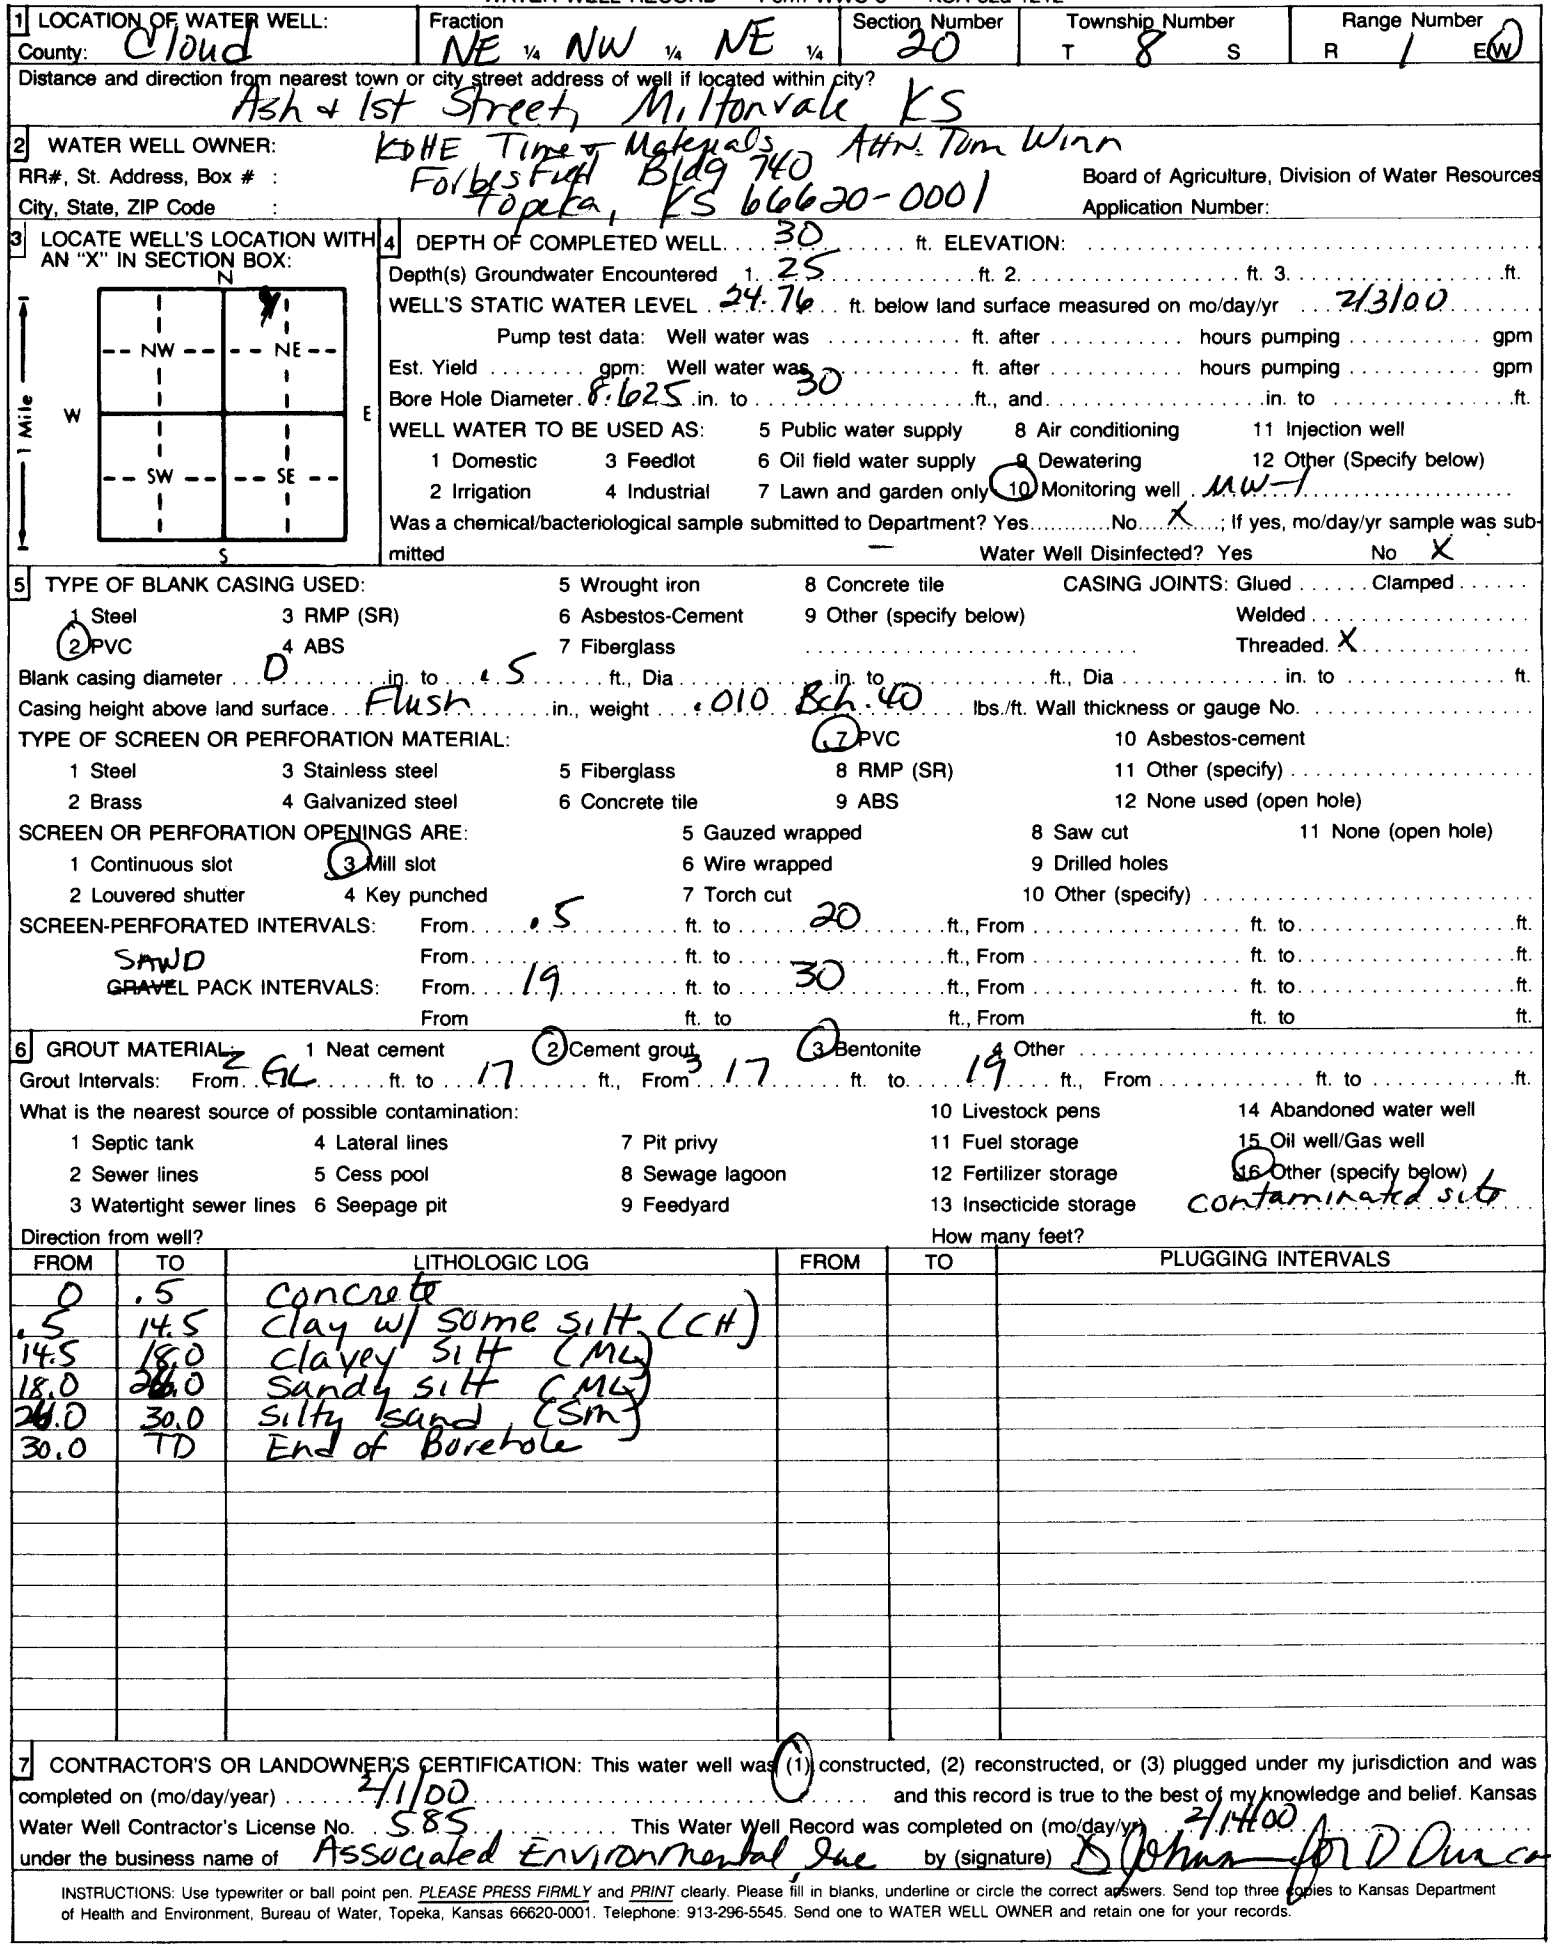 1 LOCATION OF WATER WELL: Fraction Section Number Township Number Range Number
County: Cloud NE ¼ NW ¼ NE ¼ 20 T 8 S R 1 E(W)
Distance and direction from nearest town or city street address of well if located within city?
Ash & 1st Street, Miltonvale KS
2 WATER WELL OWNER: KDHE Time & Materials Attn. Tom Winn
RR#, St. Address, Box # : Forbes Field Bldg 740 Board of Agriculture, Division of Water Resources
City, State, ZIP Code : Topeka, KS 66620-0001 Application Number:
3 LOCATE WELL'S LOCATION WITH AN "X" IN SECTION BOX:
N
NW NE
W E
SW SE
S
1 Mile
4 DEPTH OF COMPLETED WELL 30 ft. ELEVATION:
Depth(s) Groundwater Encountered 1. 25 ft. 2. ft. 3. ft.
WELL'S STATIC WATER LEVEL 24.76 ft. below land surface measured on mo/day/yr 2/3/00
Pump test data: Well water was ft. after hours pumping gpm
Est. Yield gpm: Well water was ft. after hours pumping gpm
Bore Hole Diameter 8.625 in. to 30 ft., and in. to ft.
WELL WATER TO BE USED AS: 5 Public water supply 8 Air conditioning 11 Injection well
1 Domestic 3 Feedlot 6 Oil field water supply 9 Dewatering 12 Other (Specify below)
2 Irrigation 4 Industrial 7 Lawn and garden only 10 Monitoring well MW-1
Was a chemical/bacteriological sample submitted to Department? Yes No X ; If yes, mo/day/yr sample was sub-
mitted — Water Well Disinfected? Yes No X
5 TYPE OF BLANK CASING USED: 5 Wrought iron 8 Concrete tile CASING JOINTS: Glued Clamped
1 Steel 3 RMP (SR) 6 Asbestos-Cement 9 Other (specify below) Welded
2 PVC 4 ABS 7 Fiberglass Threaded X
Blank casing diameter 0 in. to .5 ft., Dia in. to ft., Dia in. to ft.
Casing height above land surface Flush in., weight .010 Sch. 40 lbs./ft. Wall thickness or gauge No.
TYPE OF SCREEN OR PERFORATION MATERIAL: 7 PVC 10 Asbestos-cement
1 Steel 3 Stainless steel 5 Fiberglass 8 RMP (SR) 11 Other (specify)
2 Brass 4 Galvanized steel 6 Concrete tile 9 ABS 12 None used (open hole)
SCREEN OR PERFORATION OPENINGS ARE: 5 Gauzed wrapped 8 Saw cut 11 None (open hole)
1 Continuous slot 3 Mill slot 6 Wire wrapped 9 Drilled holes
2 Louvered shutter 4 Key punched 7 Torch cut 10 Other (specify)
SCREEN-PERFORATED INTERVALS: From .5 ft. to 20 ft., From ft. to ft.
SAND From ft. to ft., From ft. to ft.
GRAVEL PACK INTERVALS: From 19 ft. to 30 ft., From ft. to ft.
From ft. to ft., From ft. to ft.
6 GROUT MATERIAL: 1 Neat cement 2 Cement grout 3 Bentonite 4 Other
Grout Intervals: From 2 GL ft. to 17 ft., From 3 17 ft. to 19 ft., From ft. to ft.
What is the nearest source of possible contamination: 10 Livestock pens 14 Abandoned water well
1 Septic tank 4 Lateral lines 7 Pit privy 11 Fuel storage 15 Oil well/Gas well
2 Sewer lines 5 Cess pool 8 Sewage lagoon 12 Fertilizer storage 16 Other (specify below)
3 Watertight sewer lines 6 Seepage pit 9 Feedyard 13 Insecticide storage contaminated site
Direction from well? How many feet?
FROM TO LITHOLOGIC LOG FROM TO PLUGGING INTERVALS
0 .5 Concrete
.5 14.5 Clay w/ some silt (CH)
14.5 18.0 Clayey silt (ML)
18.0 Sandy silt (ML)
30.0 Silty sand (SM)
30.0 TD End of Borehole
7 CONTRACTOR'S OR LANDOWNER'S CERTIFICATION: This water well was (1) constructed, (2) reconstructed, or (3) plugged under my jurisdiction and was
completed on (mo/day/year) 2/1/00 and this record is true to the best of my knowledge and belief. Kansas
Water Well Contractor's License No. 585 This Water Well Record was completed on (mo/day/yr) 2/14/00
under the business name of Associated Environmental, Inc by (signature) for D Duncan
INSTRUCTIONS: Use typewriter or ball point pen. PLEASE PRESS FIRMLY and PRINT clearly. Please fill in blanks, underline or circle the correct answers. Send top three copies to Kansas Department
of Health and Environment, Bureau of Water, Topeka, Kansas 66620-0001. Telephone: 913-296-5545. Send one to WATER WELL OWNER and retain one for your records.